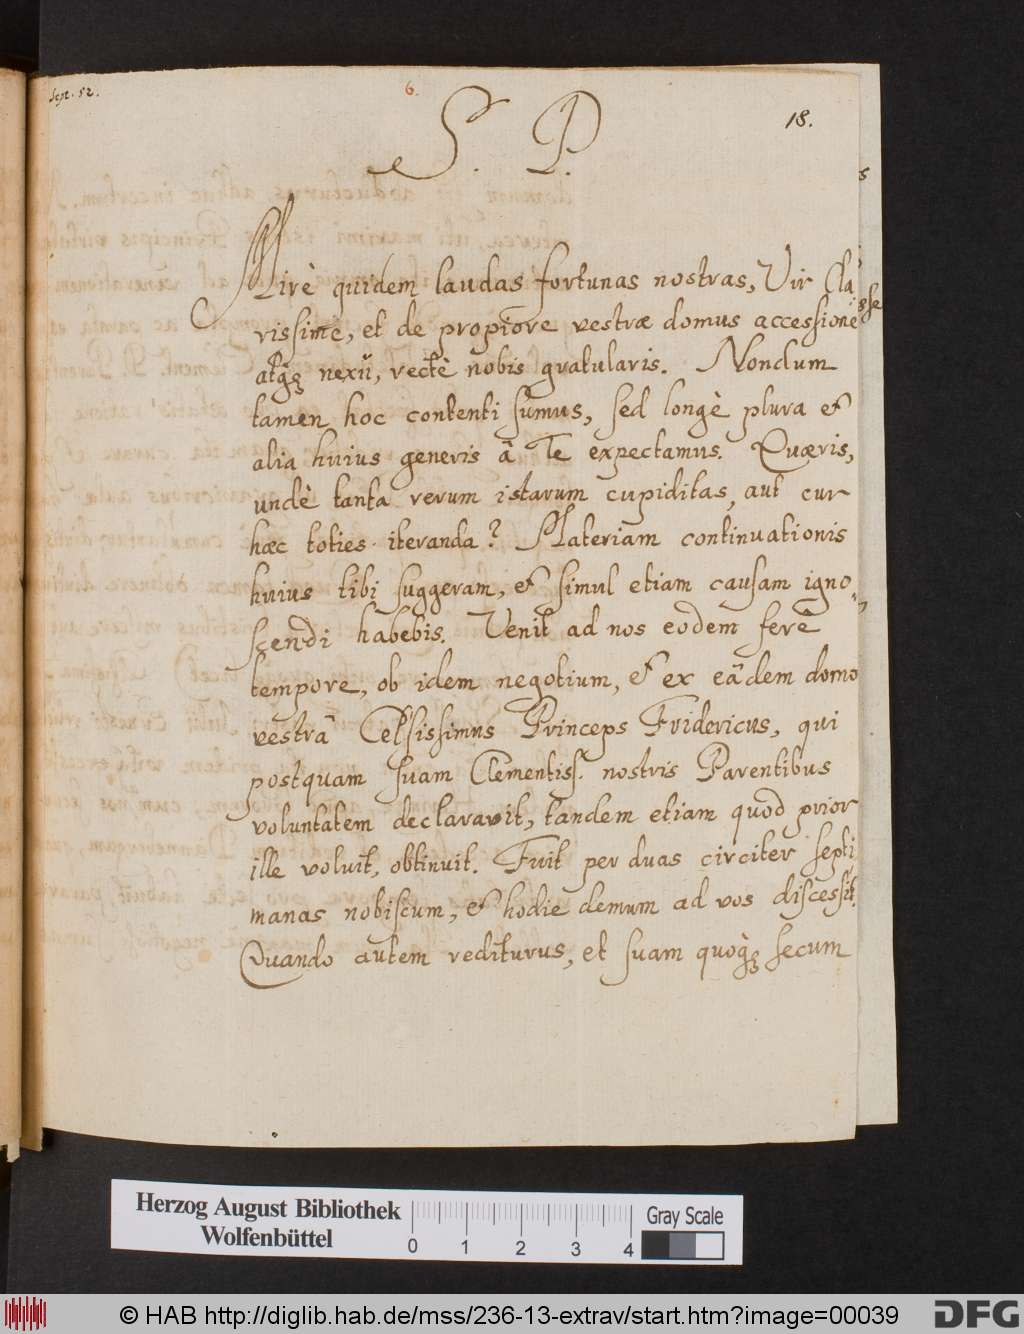 Sept. 52.
6.
18.
S. P.
Mirè quidem laudas fortunas nostras, Vir Cla-
rissime, et de propiore vestræ domus accessione
atq́ꝫ nexū, rectè nobis gratularis. Nondum
tamen hoc contenti sumus, sed longè plura et
alia huius generis â Te expectamus. Quæris,
undè tanta rerum istarum cupiditas, aut cur
hæc toties iteranda? Materiam continuationis
huius tibi suggeram, et simul etiam causam igno-
scendi habebis. Venit ad nos eodem ferè
tempore, ob idem negotium, et ex eâdem domo
vestrâ Celsissimus Princeps Fridericus, qui
postquam suam Clementiss. nostris Parentibus
voluntatem declaravit, tandem etiam quod prior
ille voluit, obtinuit. Fuit per duas circiter septi
manas nobiscum, et hodie demum ad vos discessit.
Quando autem rediturus, et suam quoq́ꝫ secum
Herzog August Bibliothek
Wolfenbüttel
0 1 2 3 4
Gray Scale
© HAB http://diglib.hab.de/mss/236-13-extrav/start.htm?image=00039
DFG